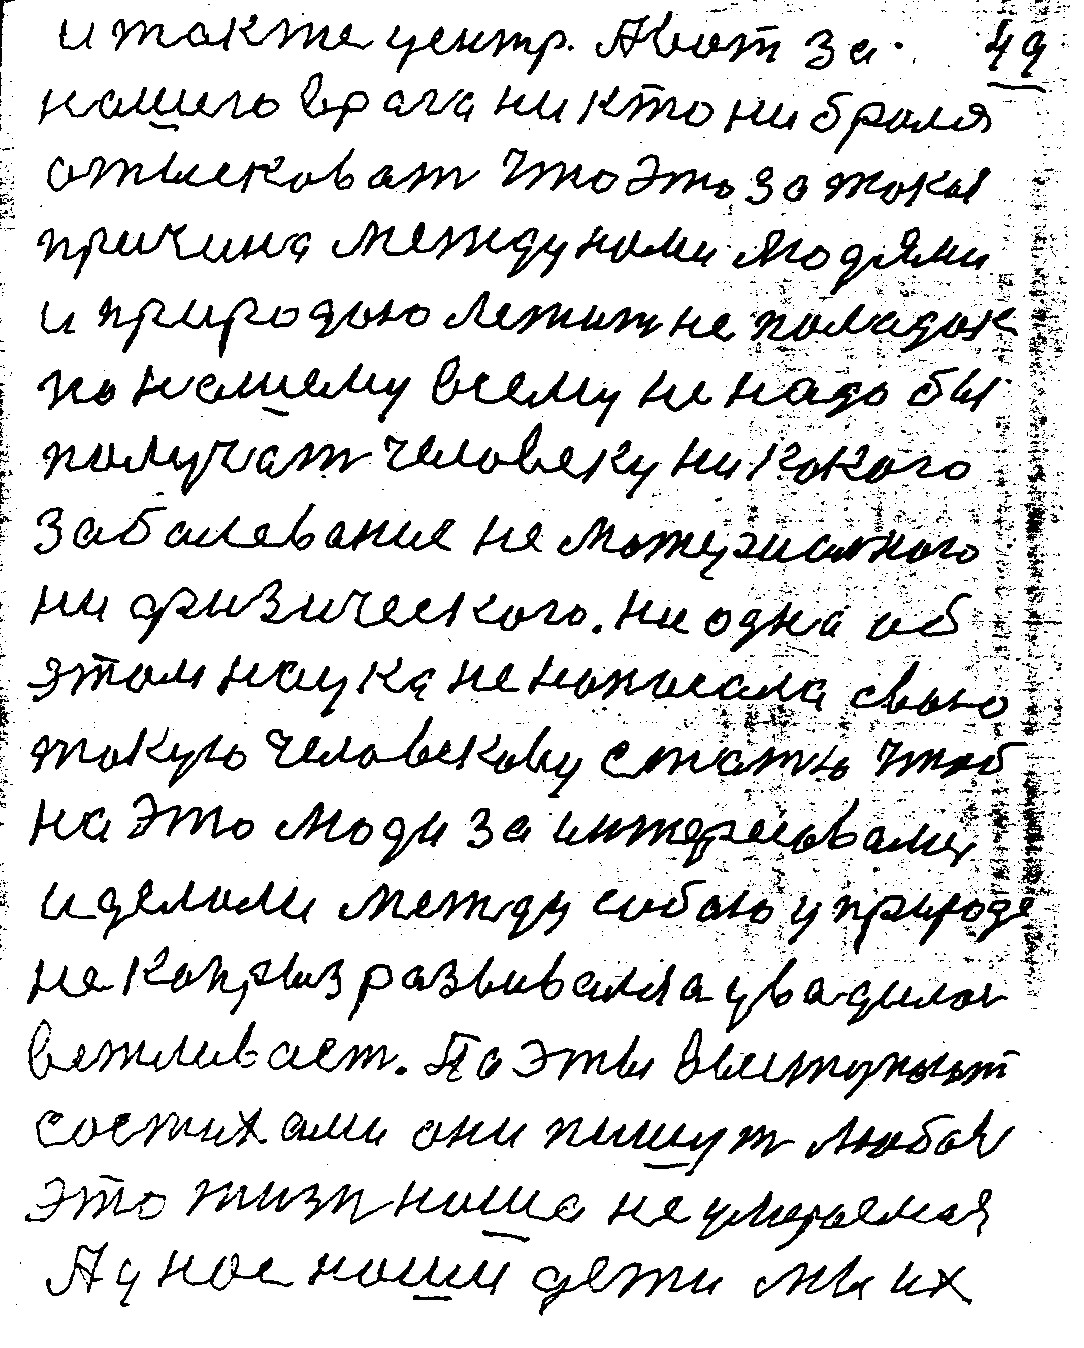 и также центр. А вот за 49
нашего врага никто ни броля
отысковат что это за такая
причина между нами людями
и природою лежит не паладок
по нашему всему не надо бы
получат человеку никокого
забалевание не материалного
ни физического. ни одна об
этом наука не нописала свою
такую человекову статью чтоб
на это люди за интересовалис
и делали между собою у природе
не каприз развивалла
вежливаст. Па эты выступают
состихами они пишут любов
это жизн наша не умераемая
А у нас наши дети мы их